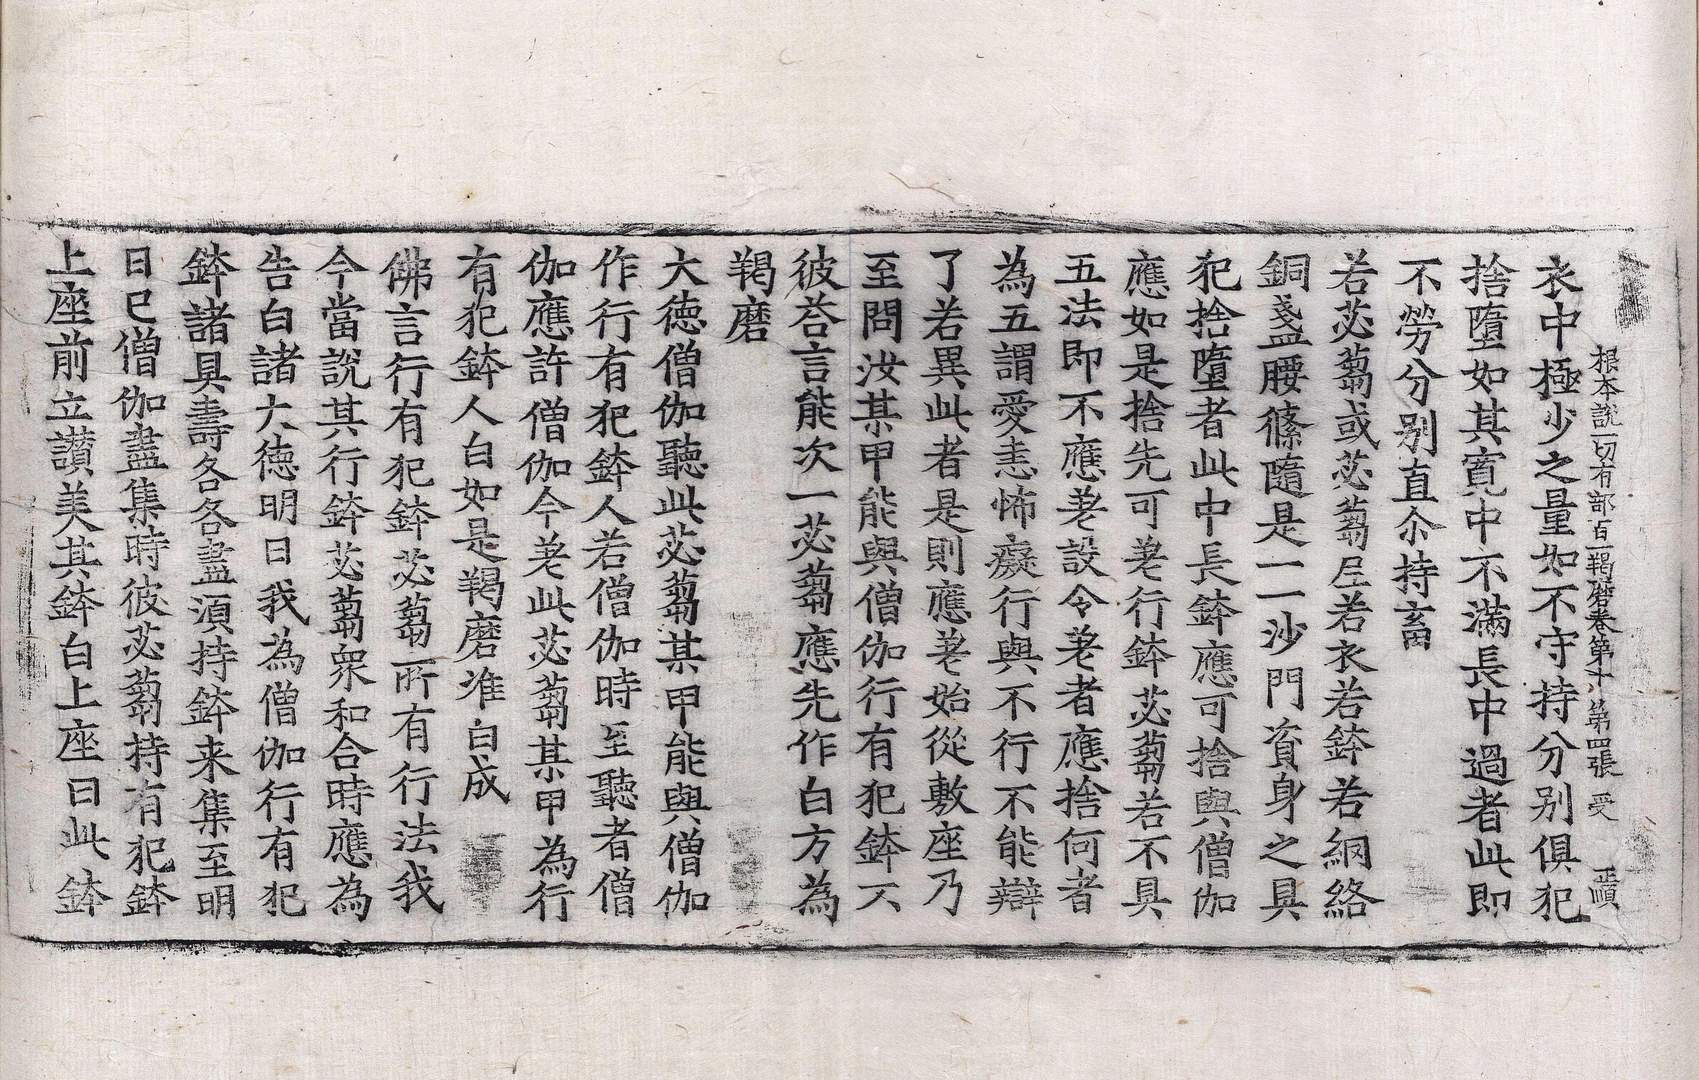 根本說一切有部百一羯磨卷第十 第四張 受 正順
衣中極少之量如不守持分別俱犯
捨墮如其寬中不滿長中過者此即
不勞分別直尒持畜
若苾蒭或苾蒭尼若衣若鉢若網絡
銅盞腰絛隨是一一沙門資身之具
犯捨墮者此中長鉢應可捨與僧伽
應如是捨先可差行鉢苾蒭若不具
五法即不應差設令差者應捨何者
為五謂愛恚怖癡行與不行不能辯
了若異此者是則應差始從敷座乃
至問汝某甲能與僧伽行有犯鉢不
彼荅言能次一苾蒭應先作白方為
羯磨
大德僧伽聽此苾蒭某甲能與僧伽
作行有犯鉢人若僧伽時至聽者僧
伽應許僧伽今差此苾蒭某甲為行
有犯鉢人白如是羯磨准白成
佛言行有犯鉢苾蒭所有行法我
今當說其行鉢苾蒭衆和合時應為
告白諸大德明日我為僧伽行有犯
鉢諸具壽各各盡湏持鉢来集至明
日已僧伽盡集時彼苾蒭持有犯鉢
上座前立讃美其鉢白上座曰此鉢